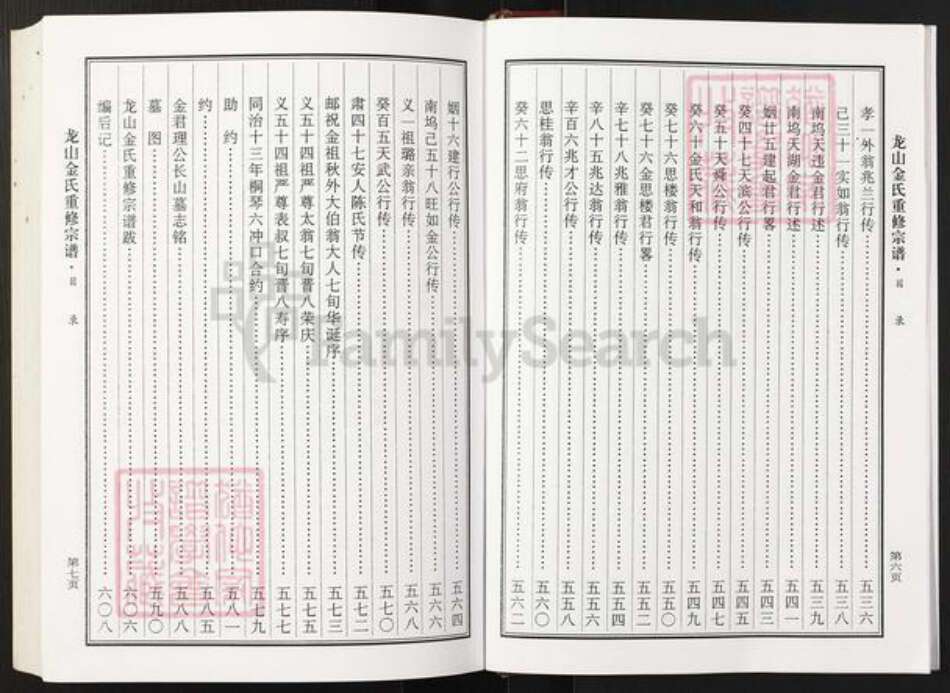 龙山金氏重修宗谱·目录
孝一外翁兆兰行传……五三六
己三十一实如翁行传……五三八
南坞天违金君行述……五三九
南坞天湖金君行述……五四一
姻廿五建起君行畧……五四三
癸四十七天滨公行传……五四五
癸五十天舜公行传……五四七
癸六十金氏天和翁行传……五四九
癸七十六思楼翁行传……五五〇
癸七十六金思楼君行畧……五五二
辛七十八兆雅翁行传……五五四
辛八十五兆达翁行传……五五六
辛百六兆才公行传……五五八
思桂翁行传……五六〇
癸六十二思府翁行传……五六二
第六页
姻十六建行公行传……五六四
南坞己五十八旺如金公行传……五六六
义一祖璐亲翁行传……五六八
癸百五天武公行传……五七〇
肃四十七安人陈氏节传……五七二
邮祝金祖秋外大伯翁大人七旬华诞序……五七三
义五十四祖严尊太翁七旬晋八荣庆……五七五
义五十四祖严尊表叔七旬晋八寿序……五七七
同治十三年桐琴六冲口合约……五七九
助约……五八一
约……五八五
金君理公长山墓志铭……五八八
墓图……五九〇
龙山金氏重修宗谱跋……六〇六
编后记……六〇八
龙山金氏重修宗谱·目录
第七页
FamilySearch